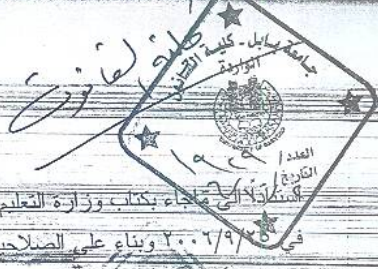 كلية القانون
جامعة بابل - كلية القانون
الواردة
العدد / ١٩٠٩
التاريخ /
استناداً الى ماجاء بكتاب وزارة التعليم
في ٢٠٠٦/٩/٢٥ وبناء على الصلاحيات